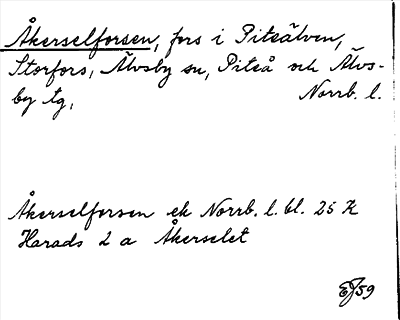 Åkerselforsen, fors i Piteälven,
Storfors, Älvsby sn, Piteå och Älvs-
by tg, Norrb. l.
Åkerselforsen ek Norrb. l. bl. 25 K
Harads 2 a Åkerselet
EJ59